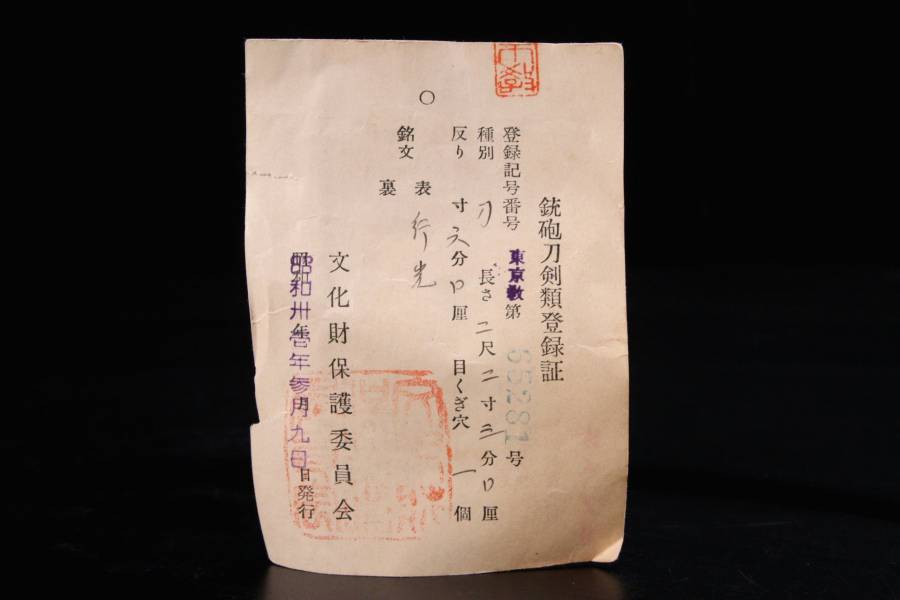 銃砲刀剣類登録証
登録記号番号 東京教第65281号
種別 刀 長さ二尺二寸三分〇厘
反り 寸六分〇厘 目くぎ穴 一個
銘文 表 行光
裏
文化財保護委員会
昭和卅壱年参月九日発行